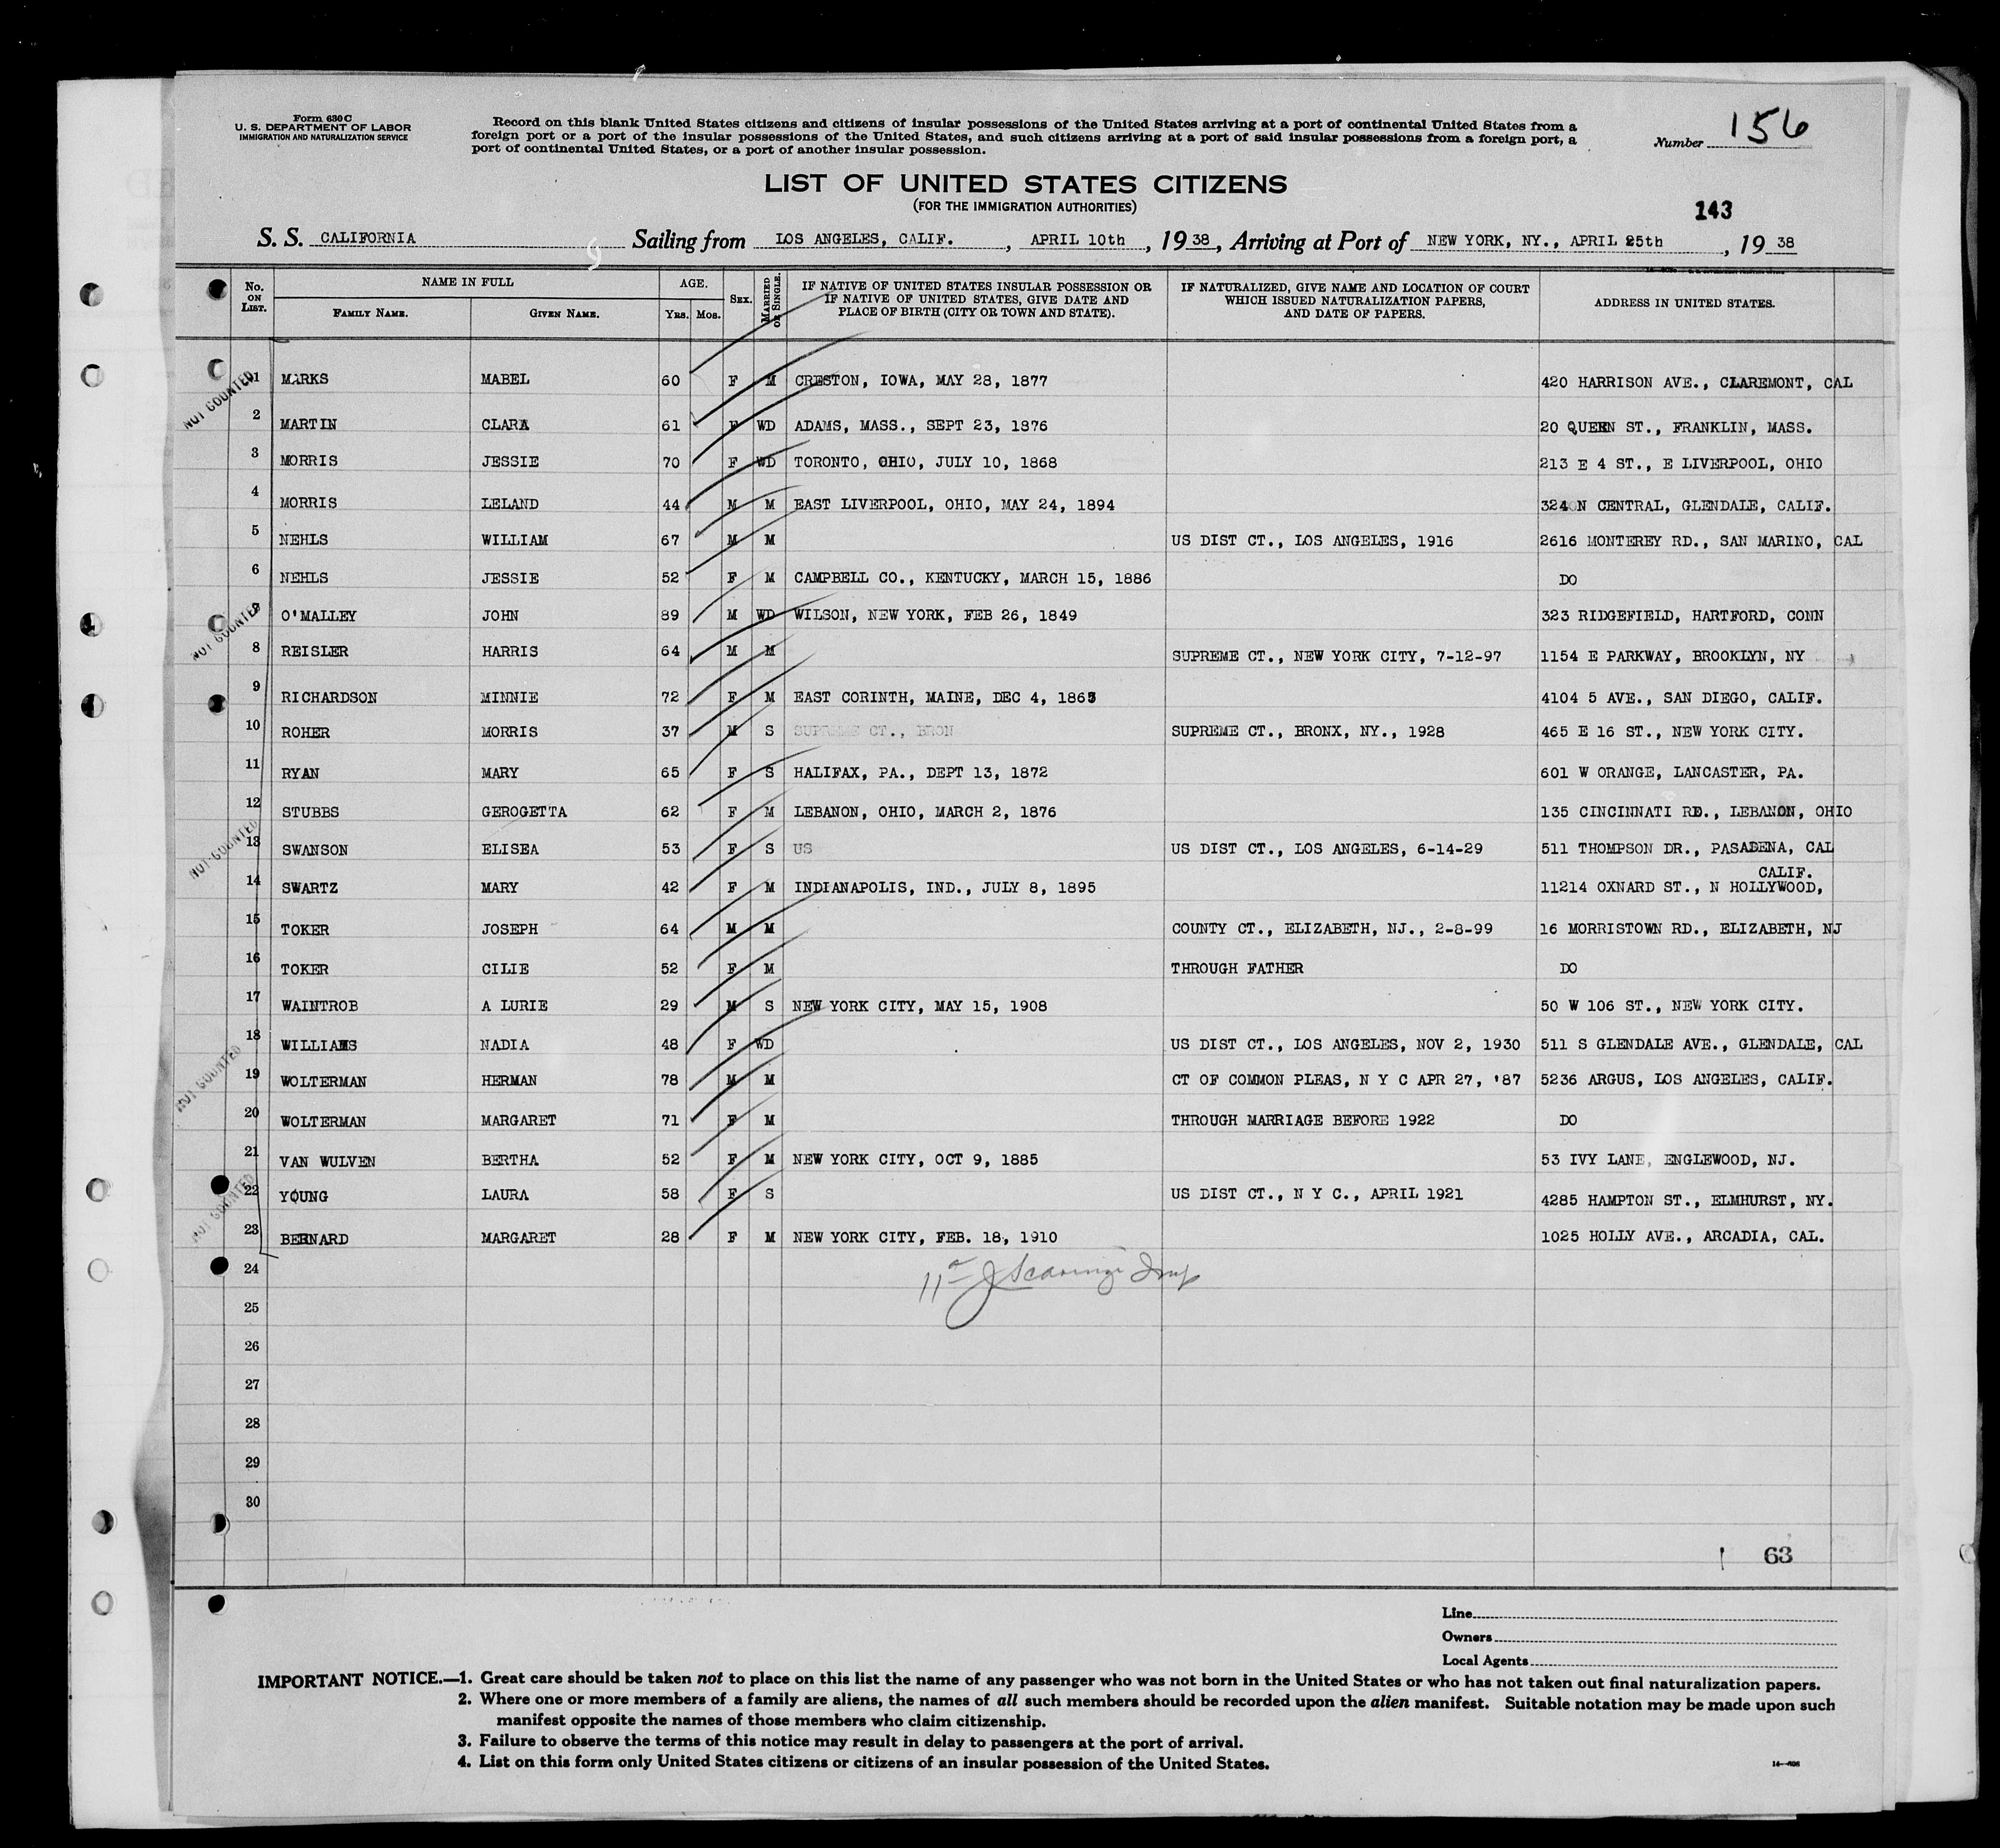 Form 630 C
U. S. DEPARTMENT OF LABOR
IMMIGRATION AND NATURALIZATION SERVICE
Record on this blank United States citizens and citizens of insular possessions of the United States arriving at a port of continental United States from a
foreign port or a port of the insular possessions of the United States, and such citizens arriving at a port of said insular possessions from a foreign port, a
port of continental United States, or a port of another insular possession.
Number 156
LIST OF UNITED STATES CITIZENS
(FOR THE IMMIGRATION AUTHORITIES)
143
S. S. CALIFORNIA Sailing from LOS ANGELES, CALIF. , APRIL 10th , 19 38 , Arriving at Port of NEW YORK, NY., APRIL 25th , 19 38
No. ON LIST. NAME IN FULL FAMILY NAME. GIVEN NAME. AGE. YRS. MOS. SEX. MARRIED OR SINGLE. IF NATIVE OF UNITED STATES INSULAR POSSESSION OR IF NATIVE OF UNITED STATES, GIVE DATE AND PLACE OF BIRTH (CITY OR TOWN AND STATE). IF NATURALIZED, GIVE NAME AND LOCATION OF COURT WHICH ISSUED NATURALIZATION PAPERS, AND DATE OF PAPERS. ADDRESS IN UNITED STATES.
NOT COUNTED
1 MARKS MABEL 60 F M CRESTON, IOWA, MAY 28, 1877 420 HARRISON AVE., CLAREMONT, CAL
2 MARTIN CLARA 61 F WD ADAMS, MASS., SEPT 23, 1876 20 QUEEN ST., FRANKLIN, MASS.
3 MORRIS JESSIE 70 F WD TORONTO, OHIO, JULY 10, 1868 213 E 4 ST., E LIVERPOOL, OHIO
4 MORRIS LELAND 44 M M EAST LIVERPOOL, OHIO, MAY 24, 1894 324 N CENTRAL, GLENDALE, CALIF.
5 NEHLS WILLIAM 67 M M US DIST CT., LOS ANGELES, 1916 2616 MONTEREY RD., SAN MARINO, CAL
6 NEHLS JESSIE 52 F M CAMPBELL CO., KENTUCKY, MARCH 15, 1886 DO
NOT COUNTED
7 O'MALLEY JOHN 89 M WD WILSON, NEW YORK, FEB 26, 1849 323 RIDGEFIELD, HARTFORD, CONN
8 REISLER HARRIS 64 M M SUPREME CT., NEW YORK CITY, 7-12-97 1154 E PARKWAY, BROOKLYN, NY
9 RICHARDSON MINNIE 72 F M EAST CORINTH, MAINE, DEC 4, 1865 4104 5 AVE., SAN DIEGO, CALIF.
10 ROHER MORRIS 37 M S SUPREME CT., BRON SUPREME CT., BRONX, NY., 1928 465 E 16 ST., NEW YORK CITY.
11 RYAN MARY 65 F S HALIFAX, PA., DEPT 13, 1872 601 W ORANGE, LANCASTER, PA.
12 STUBBS GEROGETTA 62 F M LEBANON, OHIO, MARCH 2, 1876 135 CINCINNATI RD., LEBANON, OHIO
NOT COUNTED
13 SWANSON ELISEA 53 F S US US DIST CT., LOS ANGELES, 6-14-29 511 THOMPSON DR., PASADENA, CAL
CALIF.
14 SWARTZ MARY 42 F M INDIANAPOLIS, IND., JULY 8, 1895 11214 OXNARD ST., N HOLLYWOOD,
15 TOKER JOSEPH 64 M M COUNTY CT., ELIZABETH, NJ., 2-8-99 16 MORRISTOWN RD., ELIZABETH, NJ
16 TOKER CILIE 52 F M THROUGH FATHER DO
17 WAINTROB A LURIE 29 M S NEW YORK CITY, MAY 15, 1908 50 W 106 ST., NEW YORK CITY.
18 WILLIAMS NADIA 48 F WD US DIST CT., LOS ANGELES, NOV 2, 1930 511 S GLENDALE AVE., GLENDALE, CAL
NOT COUNTED
19 WOLTERMAN HERMAN 78 M M CT OF COMMON PLEAS, N Y C APR 27, '87 5236 ARGUS, LOS ANGELES, CALIF.
20 WOLTERMAN MARGARET 71 F M THROUGH MARRIAGE BEFORE 1922 DO
21 VAN WULVEN BERTHA 52 F M NEW YORK CITY, OCT 9, 1885 53 IVY LANE, ENGLEWOOD, NJ.
NOT COUNTED
22 YOUNG LAURA 58 F S US DIST CT., N Y C., APRIL 1921 4285 HAMPTON ST., ELMHURST, NY.
23 BERNARD MARGARET 28 F M NEW YORK CITY, FEB. 18, 1910 1025 HOLLY AVE., ARCADIA, CAL.
24
25
26
27
28
29
30
63
Line
Owners
Local Agents
IMPORTANT NOTICE.—1. Great care should be taken not to place on this list the name of any passenger who was not born in the United States or who has not taken out final naturalization papers.
2. Where one or more members of a family are aliens, the names of all such members should be recorded upon the alien manifest. Suitable notation may be made upon such
manifest opposite the names of those members who claim citizenship.
3. Failure to observe the terms of this notice may result in delay to passengers at the port of arrival.
4. List on this form only United States citizens or citizens of an insular possession of the United States.